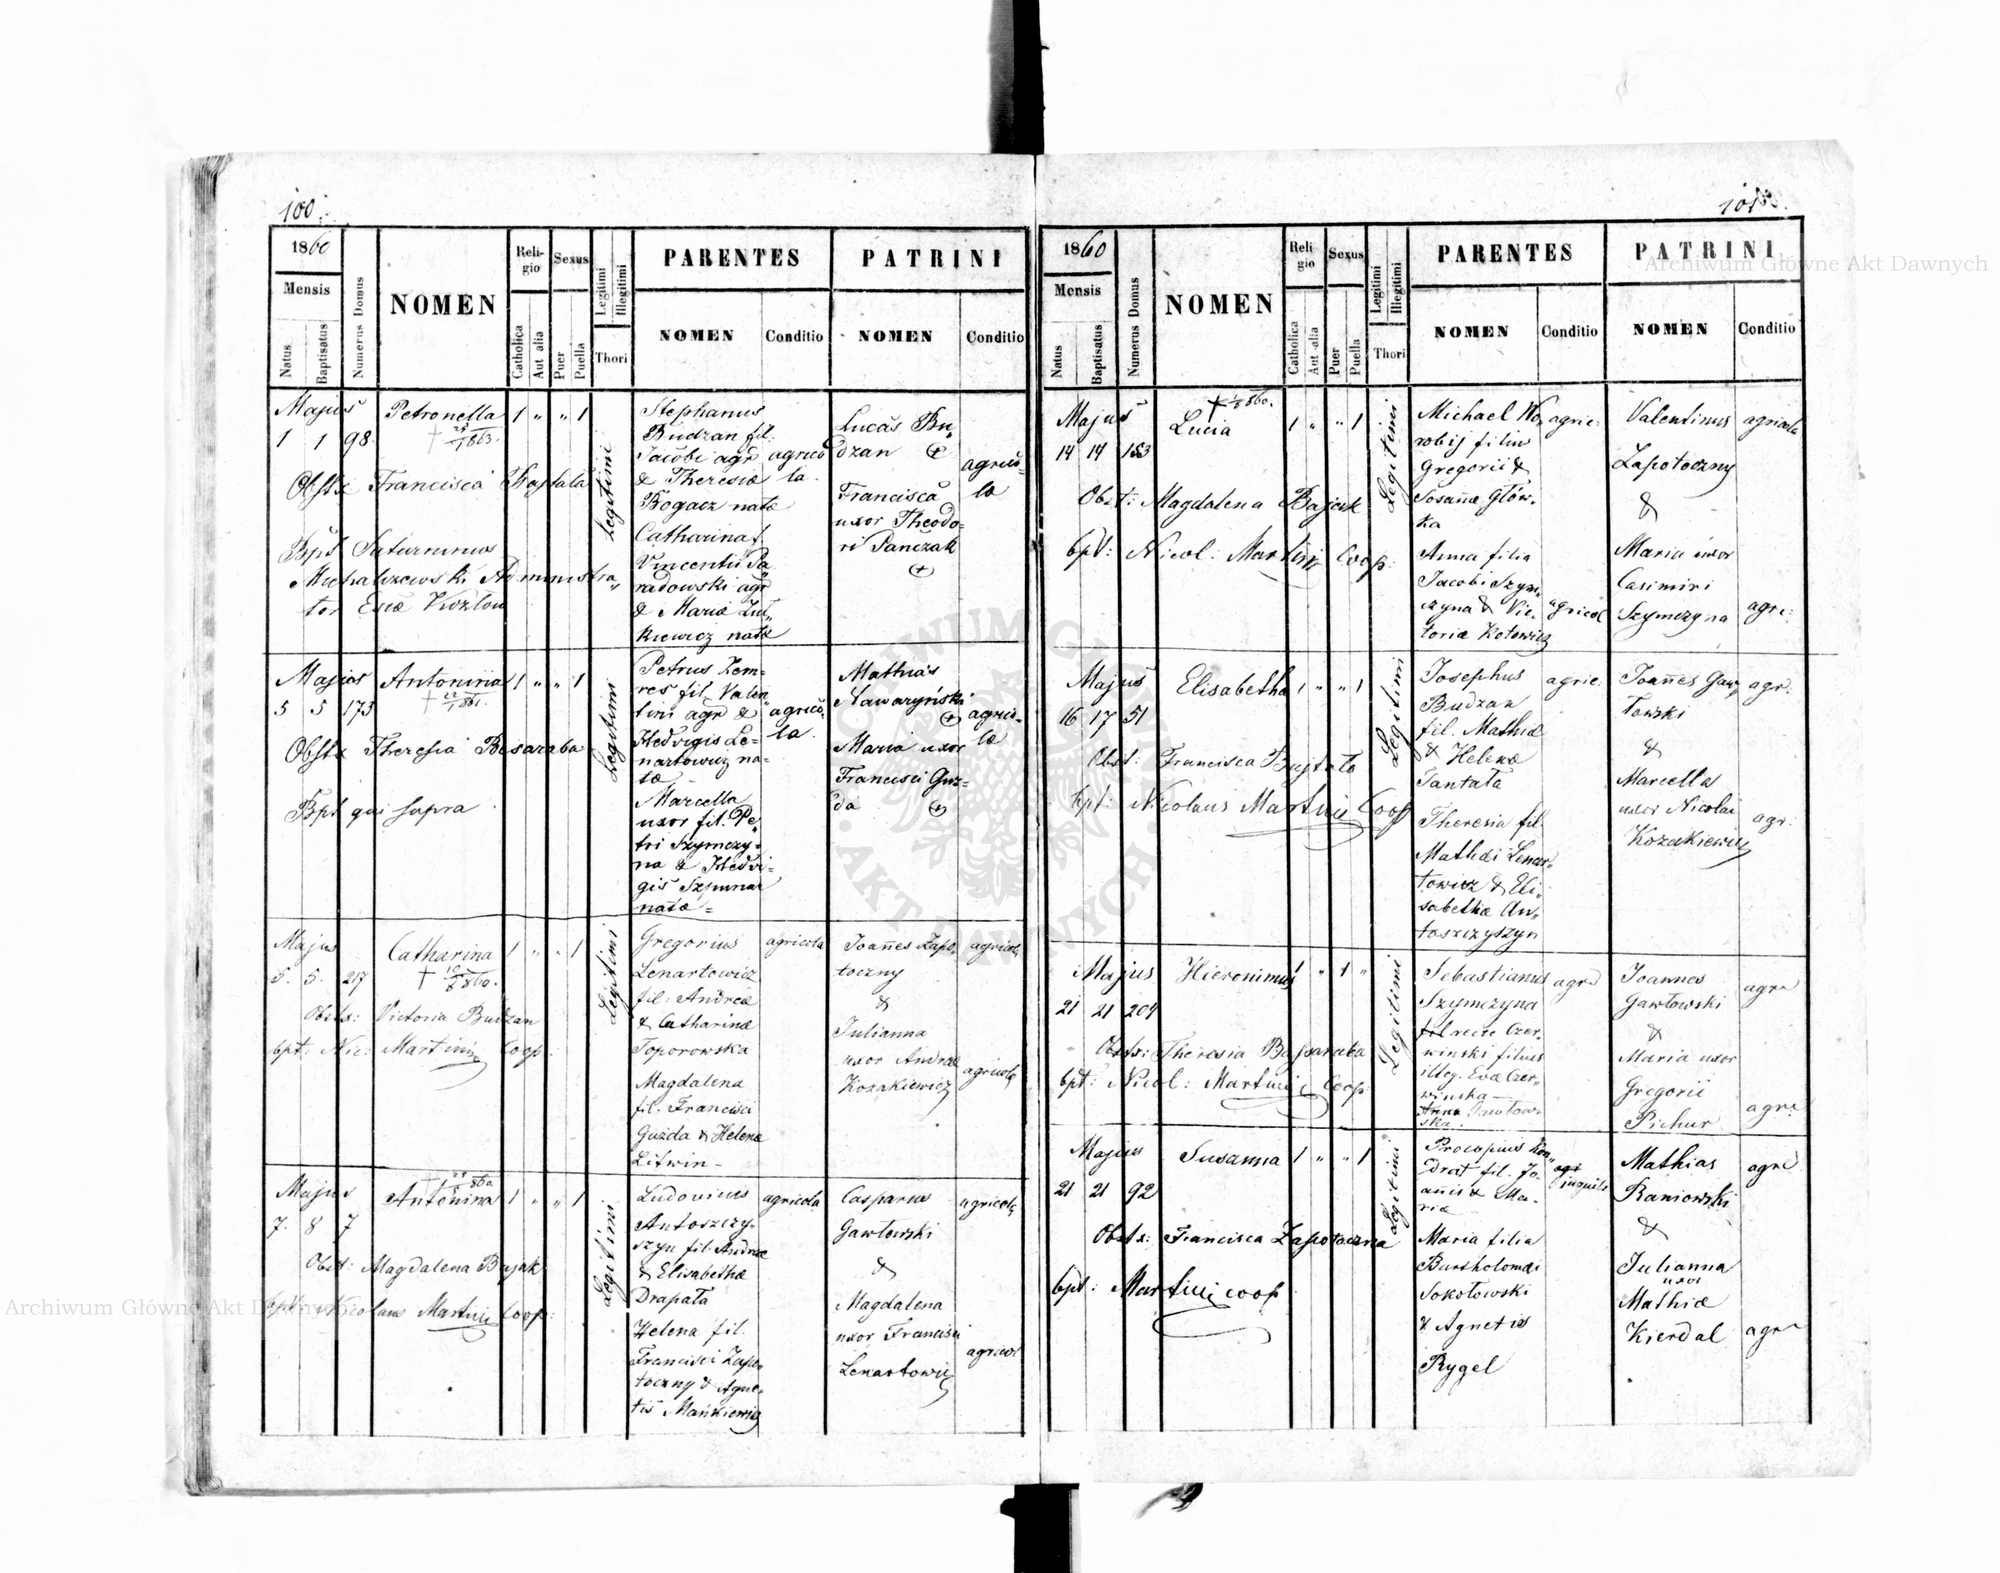 100.
1860
Mensis
Natus
Baptisatus
Numerus Domus
NOMEN
Religio
Catholica
Aut alia
Sexus
Puer
Puella
Legitimi
Illegitimi
Thori
PARENTES
NOMEN
Conditio
PATRINI
NOMEN
Conditio
Majus
1 1 98
Petronella
1 " " 1
Obstx Francisca
Bpt Saturninus
Michalszewski Administra„
tor
Legitimi
Stephanus
Budzan fil.
Jacobi agr
& Theresiæ
Bogacz natæ
Catharina f.
Vincentii Pa„
radowski agr
& Mariæ Zut„
kiewicz natæ
agrico
la.
Lucas Bu„
dzan
Francisca
uxor Theodo-
ri Panczak
agrico„
la
Majus
5 5 173
Antonina
1 " " 1
Obstx Theresia Besaraba
Bpt qui supra
Legitimi
Petrus Zem=
res fil. Valen
tini agr &
Hedvigis Le=
nartowicz na=
tæ
Marcella
uxor fil. Pe„
tri Szymczy=
na & Hedvi-
gis Szpunar
natæ =
agrico„
la.
Mathias
Nawaryński
Maria uxor
Francisci Guz=
da
agrico„
la
Majus
5. 5. 217
Catharina
1 " " 1
Obstx: Victoria Budzan
bpt: Nic: Martinij Coop
Legitimi
Gregorius
Lenartowicz
fil: Andreæ
& Catharinæ
Toporowska
Magdalena
fil. Francisci
Guzda & Helenæ
Litwin -
agricola
Joañes Zapo„
toczny
&
Julianna
uxor Andreæ
Kozakiewicz
agricolæ
agricolæ
Majus
7. 8 7
Antonina
1 " " 1
Obst: Magdalena Bujak
bpt: Nicolaus Martinij Coop:
Legitimi
Ludovicus
Antoszczy„
szyn fil. Andreæ
& Elisabethæ
Drapata
Helena fil.
Francisci Zapo„
toczny & Agne„
tis Mankiewicz
agricola
Casparus
Gawłowski
&
Magdalena
uxor Francisci
Lenartowicz
agricolæ
agricol
101
1860
Mensis
Natus
Baptisatus
Numerus Domus
NOMEN
Religio
Catholica
Aut alia
Sexus
Puer
Puella
Legitimi
Illegitimi
Thori
PARENTES
NOMEN
Conditio
PATRINI
NOMEN
Conditio
Majus
14 14 153
Lucia
1 " " 1
Obst: Magdalena Bujak
bpt: Nicol: Martinij Coop:
Legitimi
Michael Wo„
robij filius
Gregorii &
Sosañæ Głów„
ka
Anna filia
Jacobi Szym„
czyna & Vic„
toriæ Kotowicz
agric:
agricol
Valentinus
Zapotoczny
&
Maria uxor
Casimiri
Szymczyna
agricola
agr:
Majus
16 17 51
Elisabetha
1 " " 1
Obst: Francisca
bpt: Nicolaus Martinij Coop
Legitimi
Josephus
Budzan
fil. Mathiæ
& Helenæ
Tantała
Theresia fil.
Mathæi Lenar„
towicz & Eli„
sabethæ An„
toszczyszyn
agric:
Joañes Gaw„
łowski
&
Marcella
uxor Nicolai
Kozakiewicz
agr.
agr:
Majus
21 21 209
Hieronimus
1 " 1 "
Obstx: Theresia Bessaraba
bpt: Nicol: Martinij Coop:
Legitimi
Sebastianus
Szymczyna
recte Czer„
winski filius
illeg. Evæ Czer„
winska
Anna Gawłow„
ska.
agr
Joannes
Gawłowski
&
Maria uxor
Gregorii
Pichur
agr
agr
Majus
21 21 92
Susanna
1 " " 1
Obstx: Francisca Zapotoczna
bpt: Martinij coop
Legitimi
Procopius Kon„
drat fil. Jo„
añis & Ma„
riæ
Maria filia
Bartholomæi
Sokołowski
& Agnetis
Rygel
agr
inquil
Mathias
Raniowski
&
Julianna
uxor
Mathiæ
Kierdal
agr
agr
Archiwum Główne Akt Dawnych
Archiwum Główne Akt Dawnych